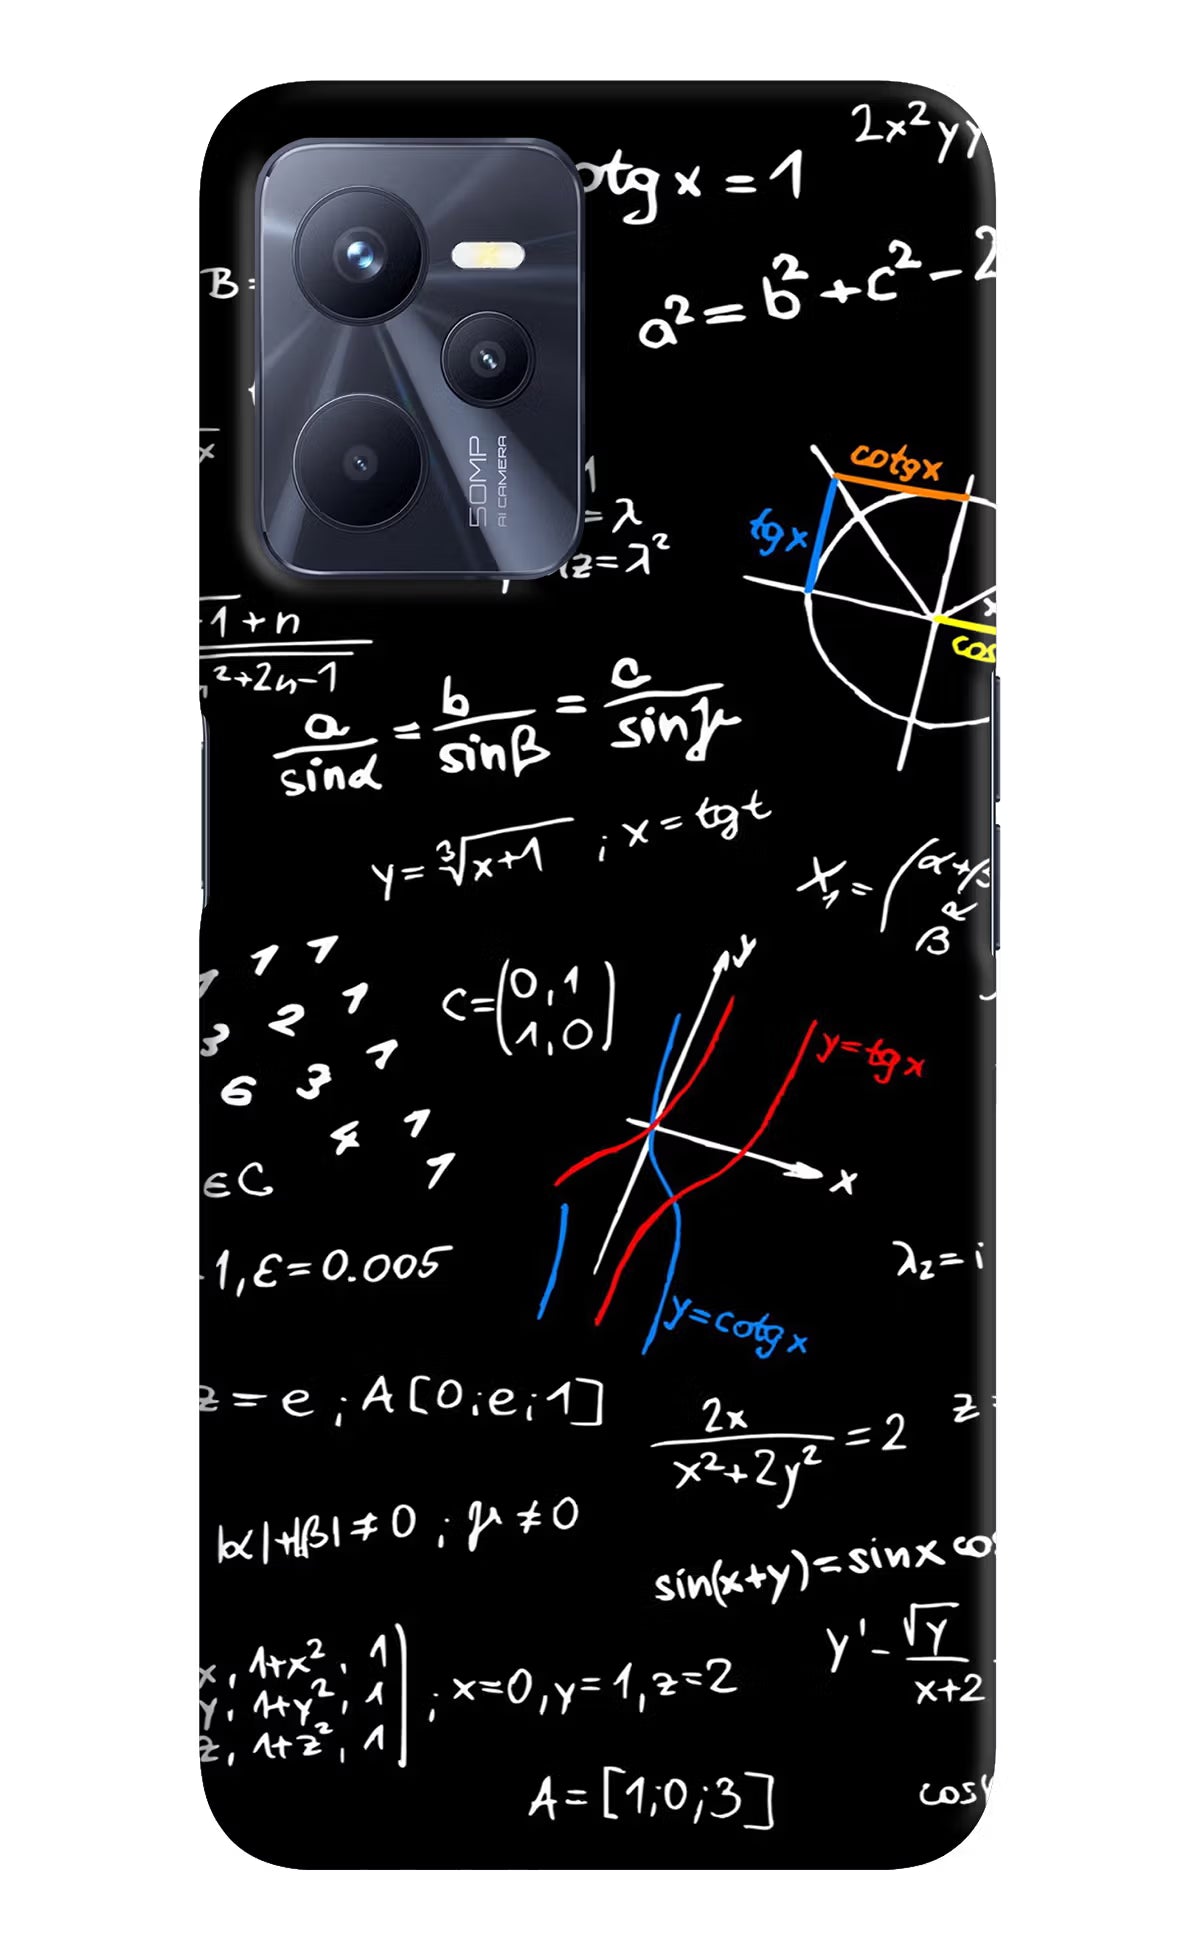 2x²yy
otg x = 1
B =
a² = b² + c² - 2
50MP
AI CAMERA
cotgx
tgx
x
1
= λ
z = λ²
-1+n
²+2n-1
x
cos
a/sinα = b/sinβ = c/sinγ
y = ∛x+1 ; x = tgt
X₁ = (α+β
β
1 1
1 2 1
3 1
6 3
4 1
1
C = (0,1
1,0)
y
y=tgx
x
y=cotgx
εC
1, ε=0.005
λ₂=i
z = e ; A[0;e;1]
2x/x²+2y² = 2
z =
|α|+|β| ≠ 0 ; γ ≠ 0
sin(x+y)=sinx cos
y' - √y/x+2
x, 1+x², 1
y, 1+y², 1
z, 1+z², 1
; x=0, y=1, z=2
A=[1;0;3]
cosy